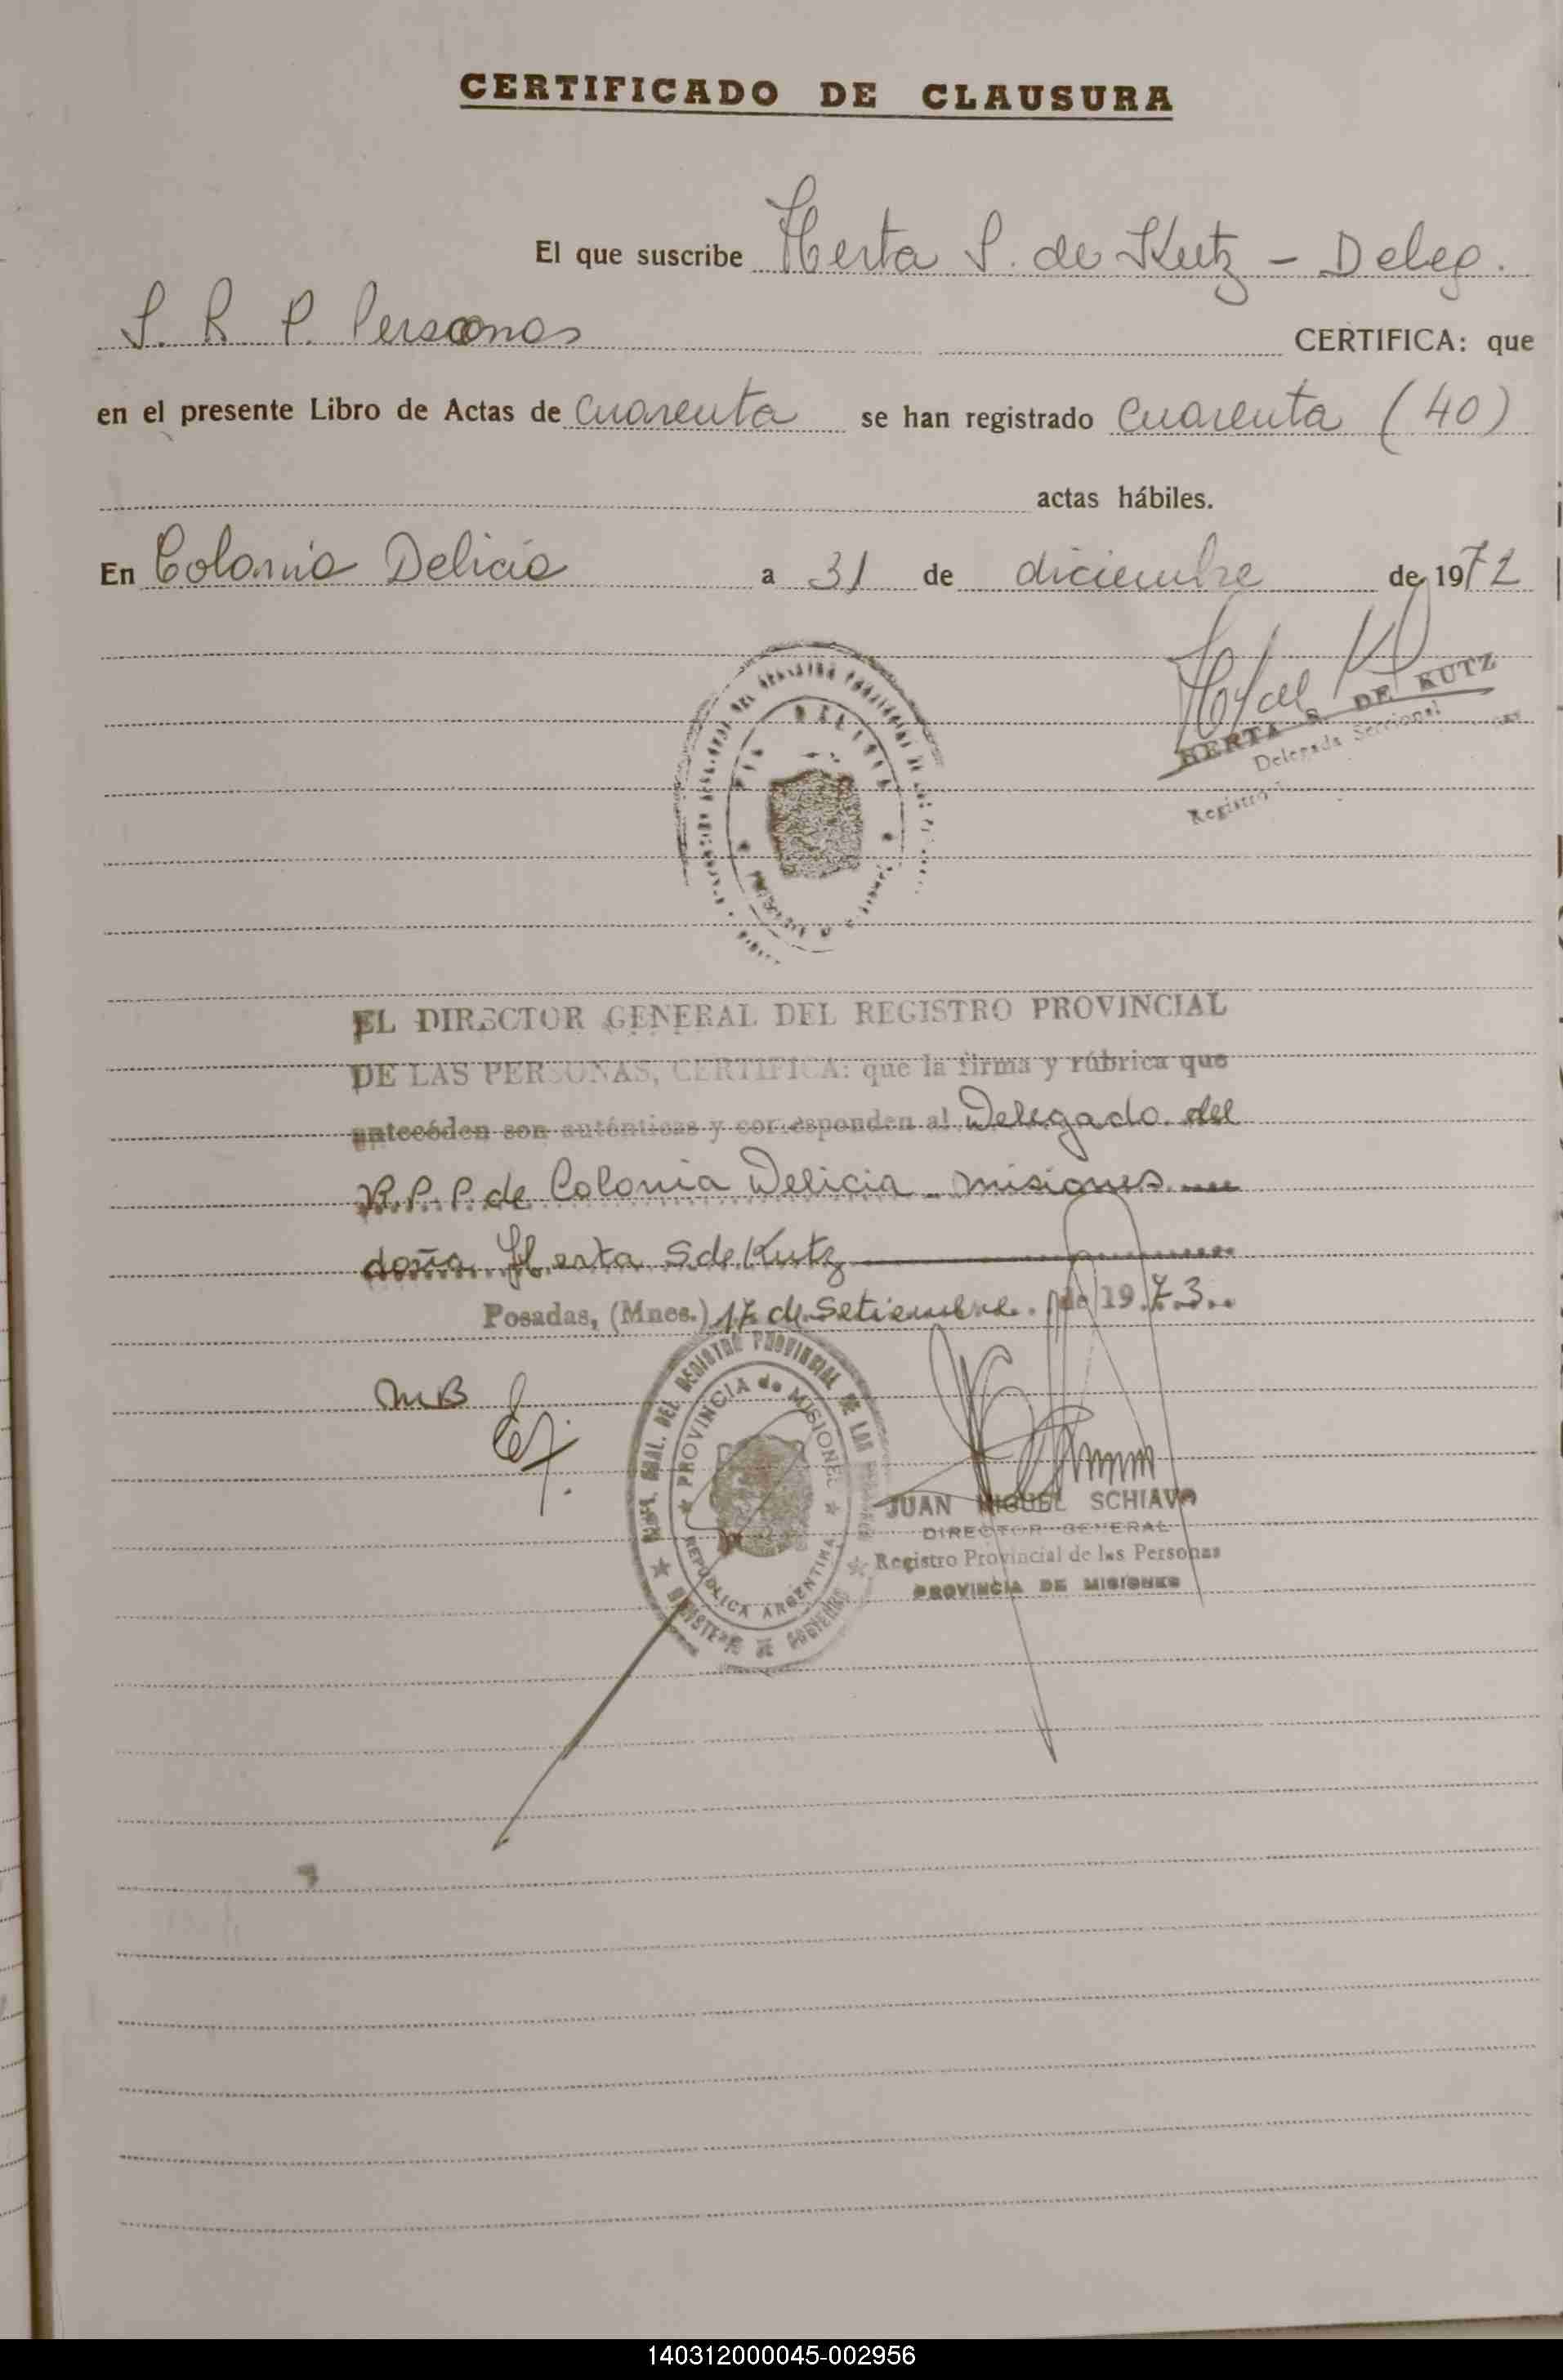 CERTIFICADO DE CLAUSURA
El que suscribe Herta S. de Kutz - Deleg.
S. R. P. Personas CERTIFICA: que
en el presente Libro de Actas de cuarenta se han registrado cuarenta (40)
actas hábiles.
En Colonia Delicia a 31 de diciembre de 1972
HERTA S. DE KUTZ
Delegada Seccional
Registro
EL DIRECTOR GENERAL DEL REGISTRO PROVINCIAL
DE LAS PERSONAS, CERTIFICA: que la firma y rúbrica que
anteceden son auténticas y corresponden al Delegado del
R.P.P de Colonia Delicia - misiones
doña Herta S de Kutz
Posadas, (Mnes.) 17 de Setiembre de 1973
MB
GRAL. DEL REGISTRO PROVINCIAL DE LAS
PROVINCIA de MISIONES
REPUBLICA ARGENTINA
MINISTERIO DE GOBIERNO
JUAN MIGUEL SCHIAVO
DIRECTOR GENERAL
Registro Provincial de las Personas
PROVINCIA DE MISIONES
140312000045-002956